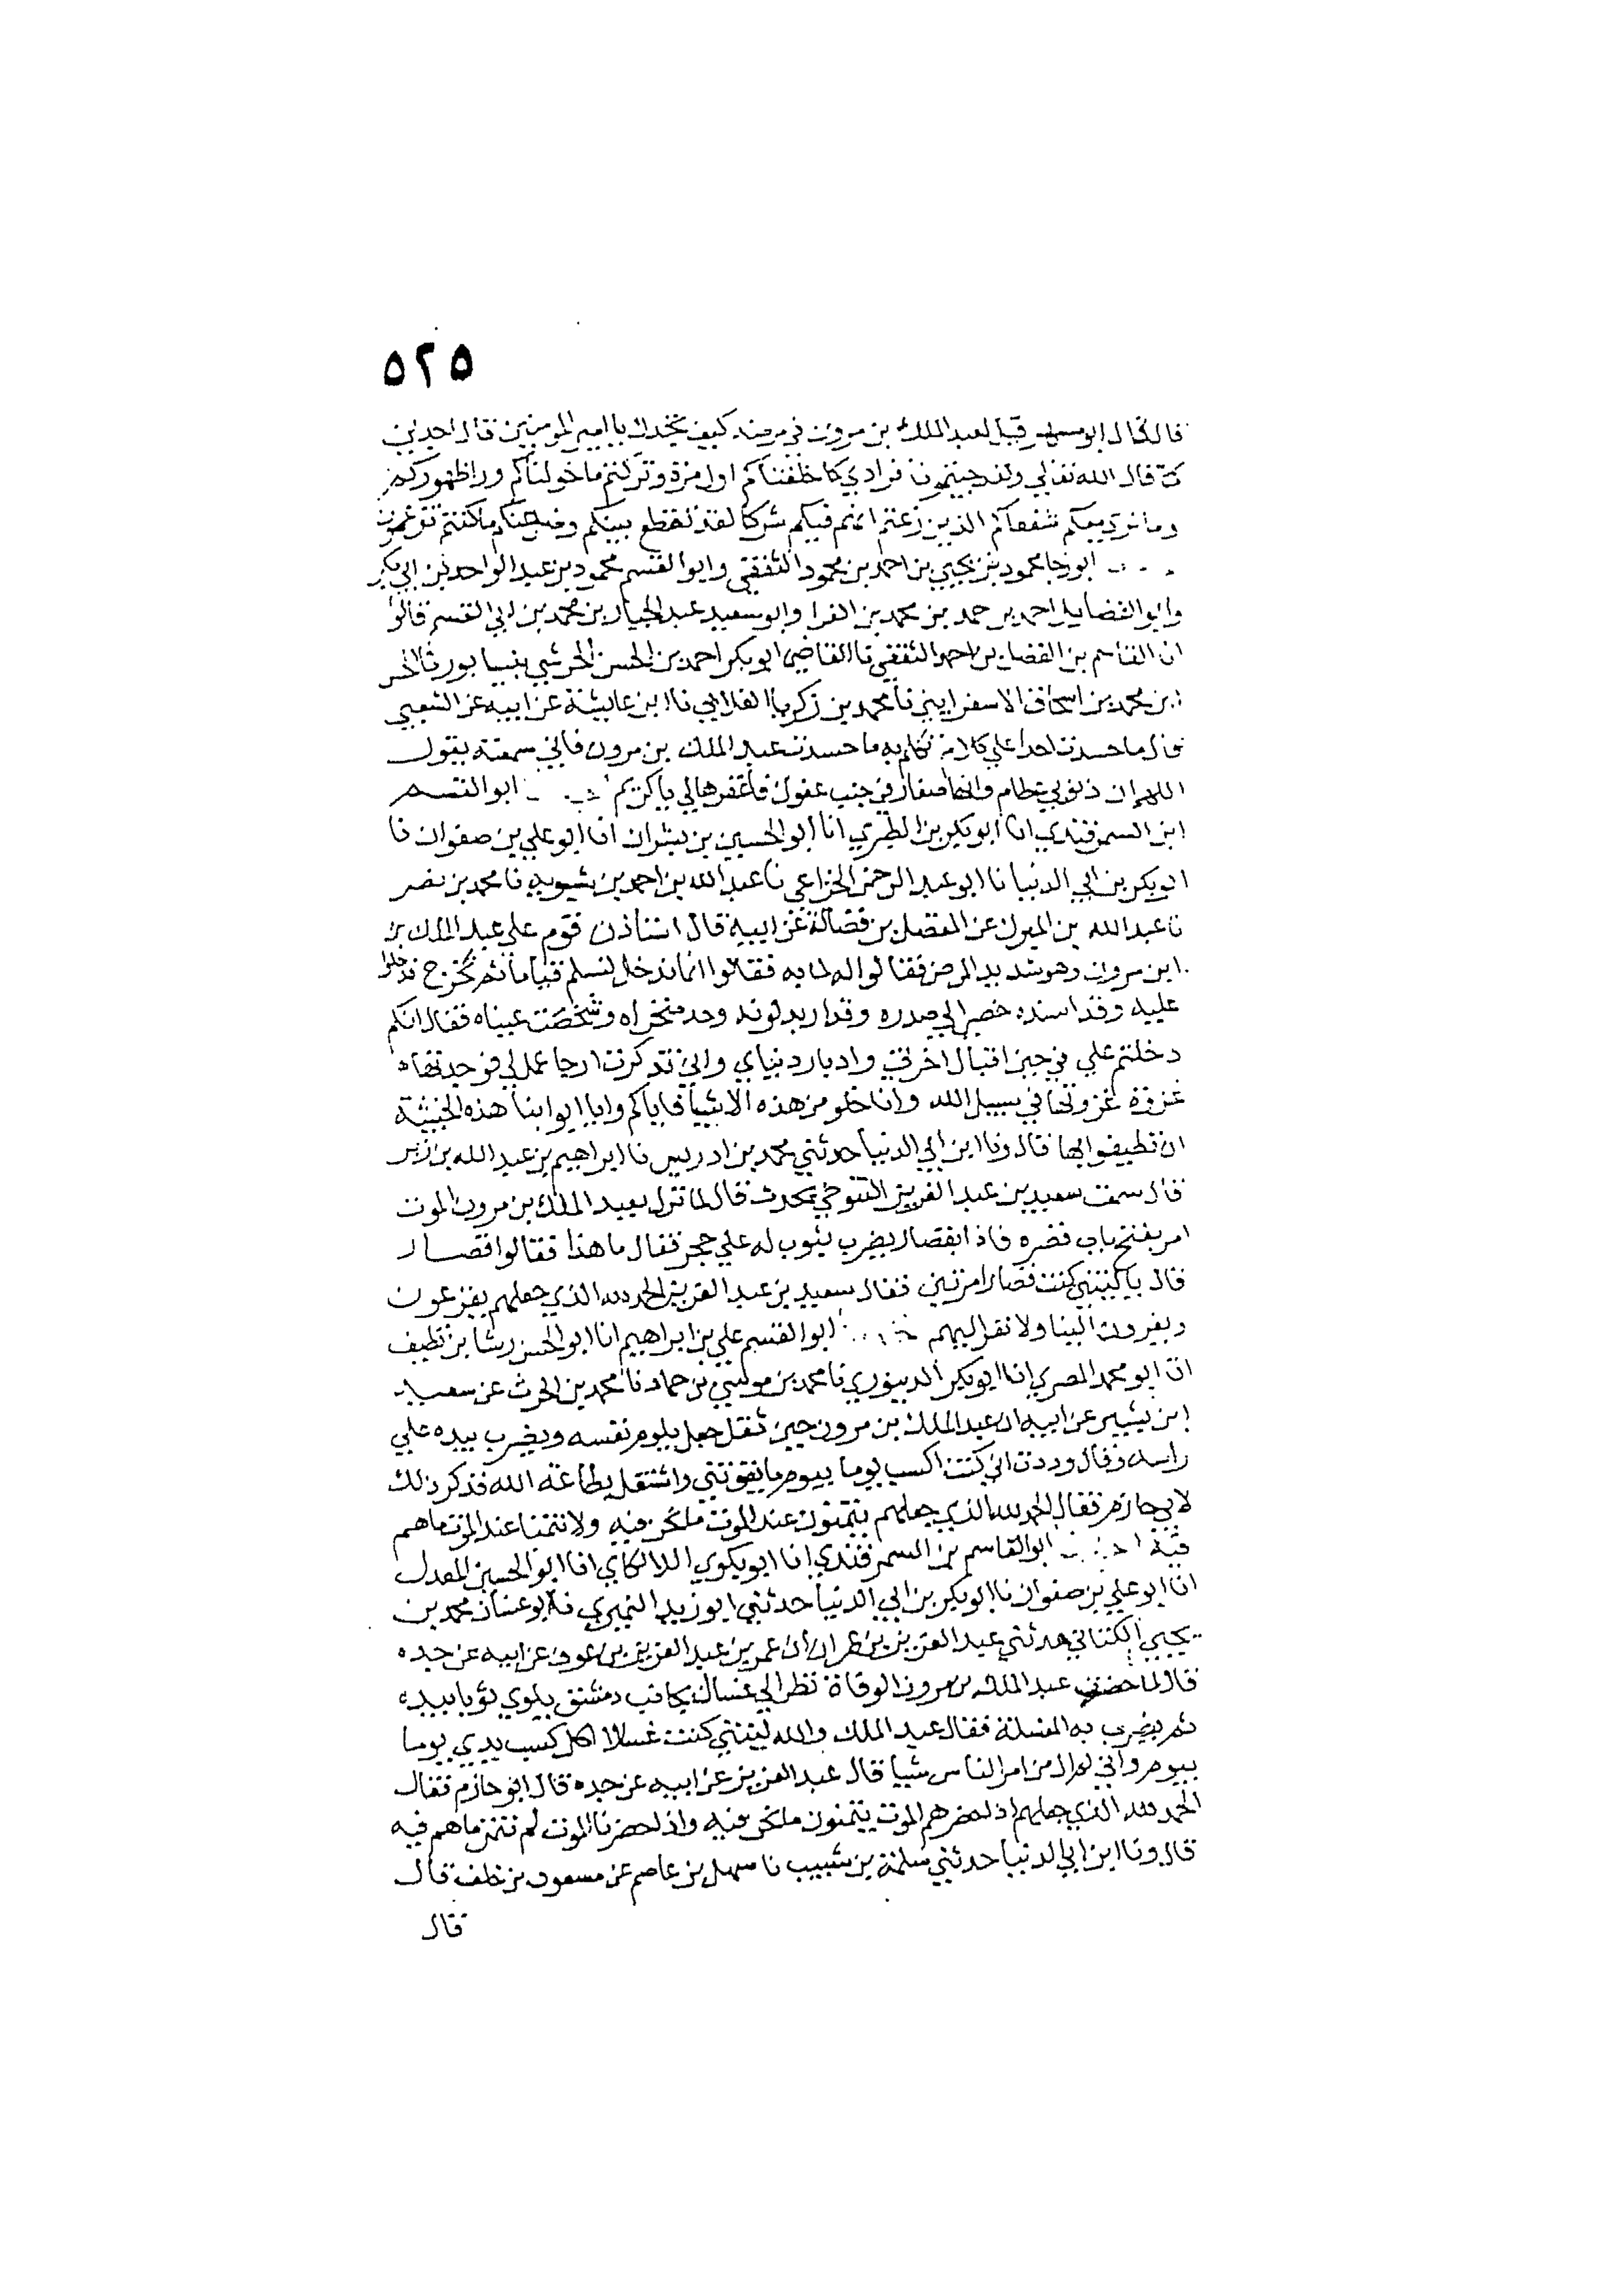 ٥٢٥
قال قال ابو مسهر قيل لعبد الملك بن مرون في مرضه كيف تجدك يا امير المومنين قال اجدني
كما قال الله تعالي ولقد جيتمونا فرادي كما خلقناكم اول مرة وتركتم ما خولناكم ورا ظهوركم
وما نري معكم شفعاكم الذين زعمتم انهم فيكم شركا لقد تقطع بينكم وضل عنكم ما كنتم تزعمون
ابو رجا محمود بن يحيي بن احمد بن محمود الثقفي وابو القسم محمود بن عبد الواحد بن ابي بكر
وابو الفضايل احمد بن حمد بن محمد بن الفرا وابو سعيد عبد الجبار بن محمد بن ابي القسم قالوا
انا القاسم بن الفضل بن احمد الثقفي نا القاضي ابو بكر احمد بن الحسن الحرشي بنيسابور نا الحسن
ابن محمد بن اسحاق الاسفراييني نا محمد بن زكريا الغلابي نا ابن عايشة عن ابيه عن الشعبي
قال ما حسدت احدا علي كلام تكلم به ما حسدت عبد الملك بن مرون فاني سمعته يقول
اللهم ان ذنوبي عظام وانها صغار في جنب عفوك فاغفرها لي يا كريم ابو القسم
ابن السمرقندي انا ابو بكر بن الطبري انا ابو الحسين بن بشران انا ابو علي بن صفوان نا
ابو بكر بن ابي الدنيا نا ابو عبد الرحمن الخزاعي نا عبد الله بن احمد بن شبويه نا محمد بن نصر
نا عبد الله بن المبرك عن المفضل بن فضالة عن ابيه قال استاذن قوم علي عبد الملك بن
ابن مروان وهو شديد المرض فقالوا له لما به فقالوا انما ندخل لنسلم قياما ثم نخرج فدخلوا
عليه وقد اسنده خصي الي صدره وقد اربد لونه وحد منخراه وشخصت عيناه فقال انكم
دخلتم علي في حين اقبال اخرتي وادبار دنياي واني تذكرت ارجا عمل لي فوجدتها
غزوة غزوتها في سبيل الله وانا خلو من هذه الاشيا فاياكم وايا ابوابنا هذه الخبيثة
ان تطيفوا بها قال ونا ابن ابي الدنيا حدثني محمد بن ادريس نا ابراهيم بن عبد الله بن زبر
قال سمعت سعيد بن عبد العزيز التنوخي يحدث قال لما نزل بعبد الملك بن مرون الموت
امر بفتح باب قصره فاذا بقصار يضرب بثوب له علي حجر فقال ما هذا فقالوا قصار
قال يا ليتني كنت قصارا مرتين فقال سعيد بن عبد العزيز الحمد لله الذي جعلهم يفزعون
ويفرون الينا ولا نفر اليهم ابو القسم علي بن ابراهيم انا ابو الحسن رشا بن نظيف
انا ابو محمد المصري انا ابو بكر الدينوري نا محمد بن موسي بن حماد نا محمد بن الحرث عن سعيد
ابن بشير عن ابيه ان عبد الملك بن مرون حين ثقل جعل يلوم نفسه ويضرب بيده علي
راسه وقال وددت اني كنت اكسب يوما بيوم ما يقوتني واشتغل بطاعة الله فذكر ذلك
لابي حازم فقال الحمد لله الذي جعلهم يتمنون عند الموت ما نحن فيه ولا نتمنا عند الموت ما هم
فيه ابو القاسم بن السمرقندي انا ابو بكوي اللالكاي انا ابو الحسين المعدل
انا ابو علي بن صفوان نا ابو بكر بن ابي الدنيا حدثني ابو زيد النميري نا ابو غسان محمد بن
يحيي الكناني حدثني عبد العزيز بن عمران ان عمر بن عبد العزيز بن عوف عن ابيه عن جده
قال لما حضرت عبد الملك بن مرون الوفاة نظر الي غسال بجانب دمشق يلوي ثوبا بيده
ثم يضرب به المغسلة فقال عبد الملك والله ليتني كنت غسالا اكل كسب يدي يوما
بيوم واني لم ال من امر الناس شيا قال عبد العزيز عن ابيه عن جده قال ابو حازم فقال
الحمد لله الذي جعلهم اذا حضرهم الموت يتمنون ما نحن فيه واذا حضرنا الموت لم نتمن ما هم فيه
قال ونا ابن ابي الدنيا حدثني سلمة بن شبيب نا سهل بن عاصم عن مسعود بن خلف قال
قال